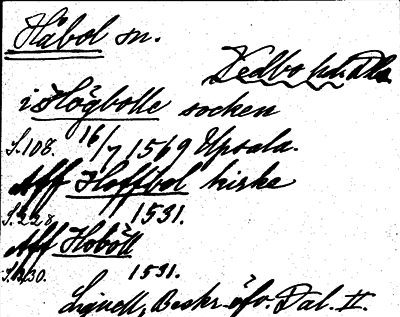 Håbol sn.
Vedbo hd. Dls
i Högbolle socken
S. 108. 16/7 1569 Upsala.
Aff Hoffbol kirke
S. 228. 1531.
Aff Hoböll
S. 230. 1531.
Lignell, Beskr. öfv. Dal. II.